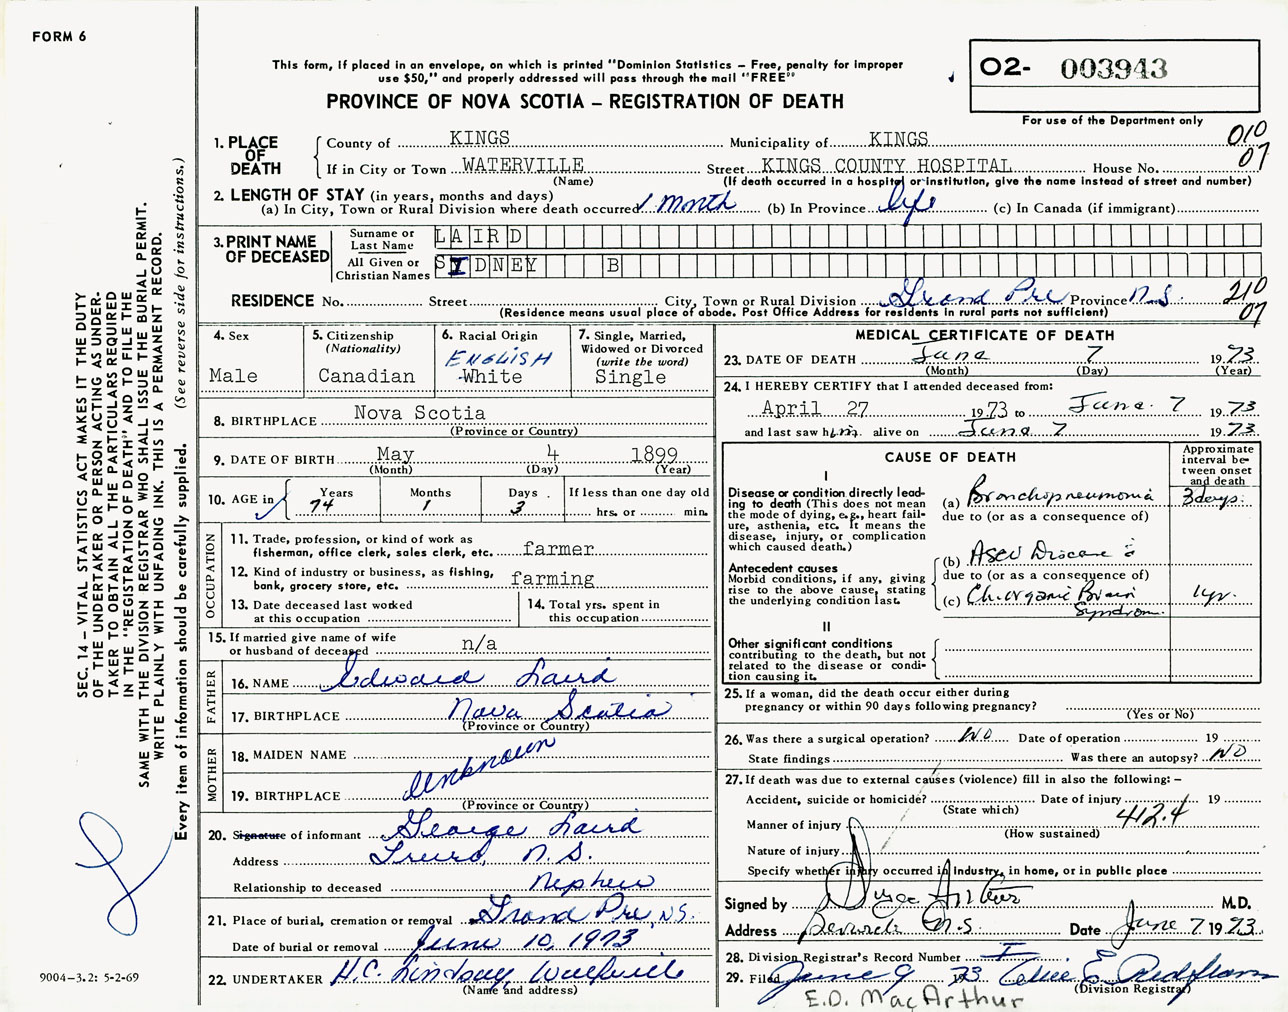 FORM 6
This form, if placed in an envelope, on which is printed "Dominion Statistics – Free, penalty for improper
use $50," and properly addressed will pass through the mail "FREE"
PROVINCE OF NOVA SCOTIA – REGISTRATION OF DEATH
02- 003943
For use of the Department only
010
07
1. PLACE OF DEATH
County of KINGS Municipality of KINGS
If in City or Town WATERVILLE Street KINGS COUNTY HOSPITAL House No.
(Name) (If death occurred in a hospital or institution, give the name instead of street and number)
2. LENGTH OF STAY (in years, months and days)
(a) In City, Town or Rural Division where death occurred 1 month (b) In Province life (c) In Canada (if immigrant)
3. PRINT NAME OF DECEASED
Surname or Last Name LAIRD
All Given or Christian Names SIDNEY B
RESIDENCE No. Street City, Town or Rural Division Grand Pre Province N.S.
(Residence means usual place of abode. Post Office Address for residents in rural parts not sufficient)
210
07
4. Sex
Male
5. Citizenship
(Nationality)
Canadian
6. Racial Origin
ENGLISH
White
7. Single, Married,
Widowed or Divorced
(write the word)
Single
8. BIRTHPLACE Nova Scotia
(Province or Country)
9. DATE OF BIRTH May 4 1899
(Month) (Day) (Year)
10. AGE in
Years Months Days If less than one day old
74 1 3 hrs. or min.
OCCUPATION
11. Trade, profession, or kind of work as
fisherman, office clerk, sales clerk, etc. farmer
12. Kind of industry or business, as fishing,
bank, grocery store, etc. farming
13. Date deceased last worked
at this occupation
14. Total yrs. spent in
this occupation
15. If married give name of wife
or husband of deceased n/a
FATHER
16. NAME Edward Laird
17. BIRTHPLACE Nova Scotia
(Province or Country)
MOTHER
18. MAIDEN NAME
19. BIRTHPLACE
Unknown
(Province or Country)
20. Signature of informant George Laird
Address Truro, N.S.
Relationship to deceased Nephew
21. Place of burial, cremation or removal Grand Pre, N.S.
Date of burial or removal June 10, 1973
22. UNDERTAKER H.C. Lindsay, Wolfville
(Name and address)
MEDICAL CERTIFICATE OF DEATH
23. DATE OF DEATH June 7 1973
(Month) (Day) (Year)
24. I HEREBY CERTIFY that I attended deceased from:
April 27 1973 to June 7 1973
and last saw him alive on June 7 1973
CAUSE OF DEATH
Approximate
interval be-
tween onset
and death
I
Disease or condition directly lead-
ing to death (This does not mean
the mode of dying, e.g., heart fail-
ure, asthenia, etc. It means the
disease, injury, or complication
which caused death.)
(a) Bronchopneumonia 3 days.
due to (or as a consequence of)
Antecedent causes
Morbid conditions, if any, giving
rise to the above cause, stating
the underlying condition last.
(b) ASCV Disease &
due to (or as a consequence of)
(c) Ch. organic Brain 1 yr.
Syndrom.
II
Other significant conditions
contributing to the death, but not
related to the disease or condi-
tion causing it.
25. If a woman, did the death occur either during
pregnancy or within 90 days following pregnancy?
(Yes or No)
26. Was there a surgical operation? NO Date of operation 19
State findings Was there an autopsy? NO
27. If death was due to external causes (violence) fill in also the following: –
Accident, suicide or homicide? Date of injury 19
(State which)
412.4
Manner of injury
(How sustained)
Nature of injury
Specify whether injury occurred in Industry, in home, or in public place
Signed by M.D.
Address Berwick N.S. Date June 7 1973
28. Division Registrar's Record Number
29. Filed June 9 1973
(Division Registrar)
E.D. MacArthur
SEC. 14 – VITAL STATISTICS ACT MAKES IT THE DUTY
OF THE UNDERTAKER OR PERSON ACTING AS UNDER-
TAKER TO OBTAIN ALL THE PARTICULARS REQUIRED
IN THE "REGISTRATION OF DEATH" AND TO FILE THE
SAME WITH THE DIVISION REGISTRAR WHO SHALL ISSUE THE BURIAL PERMIT.
WRITE PLAINLY WITH UNFADING INK. THIS IS A PERMANENT RECORD.
Every item of information should be carefully supplied. (See reverse side for instructions.)
9004-3.2: 5-2-69